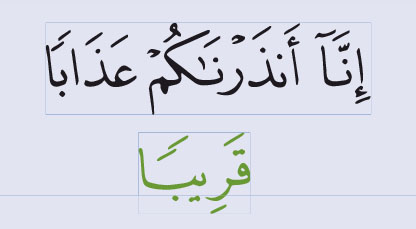 إِنَّآ أَنذَرْنَـٰكُمْ عَذَابًا
قَرِيبًا